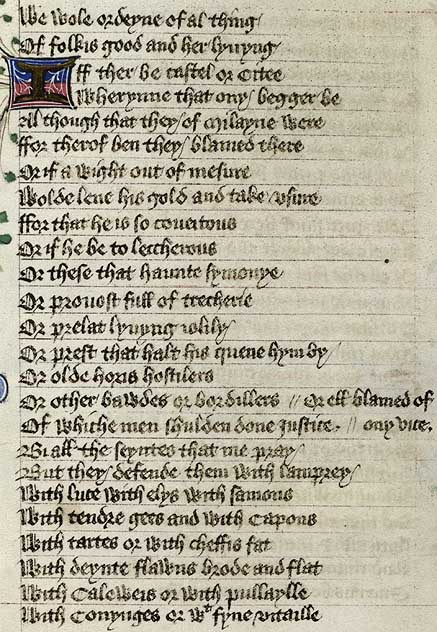 We wole ordeyne of al thing
Of folkis good and her lyuyng
Iff ther be castel or Citee
Wherynne that ony begger be
All though that they of Milayne were
ffor therof ben they blamed there
Or if a wight out of mesure
Wolde lene his gold and take vsure
ffor that he is so coueitous
Or if he be to leccherous
Or these that haunte symonye
Or prouost full of trecherie
Or prelat lyuyng iolily
Or prest that halt his quene hym by
Or olde horis hostilers
Or other bawdes or bordillers // Or ell blamed of
Of whiche men shulden done justice. // ony vice.
Bi all the seyntes that me pray
But they defende them with lamprey
With luce with elys with samons
With tendre gees and with Capons
With tartes or with cheffis fat
With deynte flawns brode and flat
With Caleweis or with pullaylle
With Conynges or wt fyne vitaille